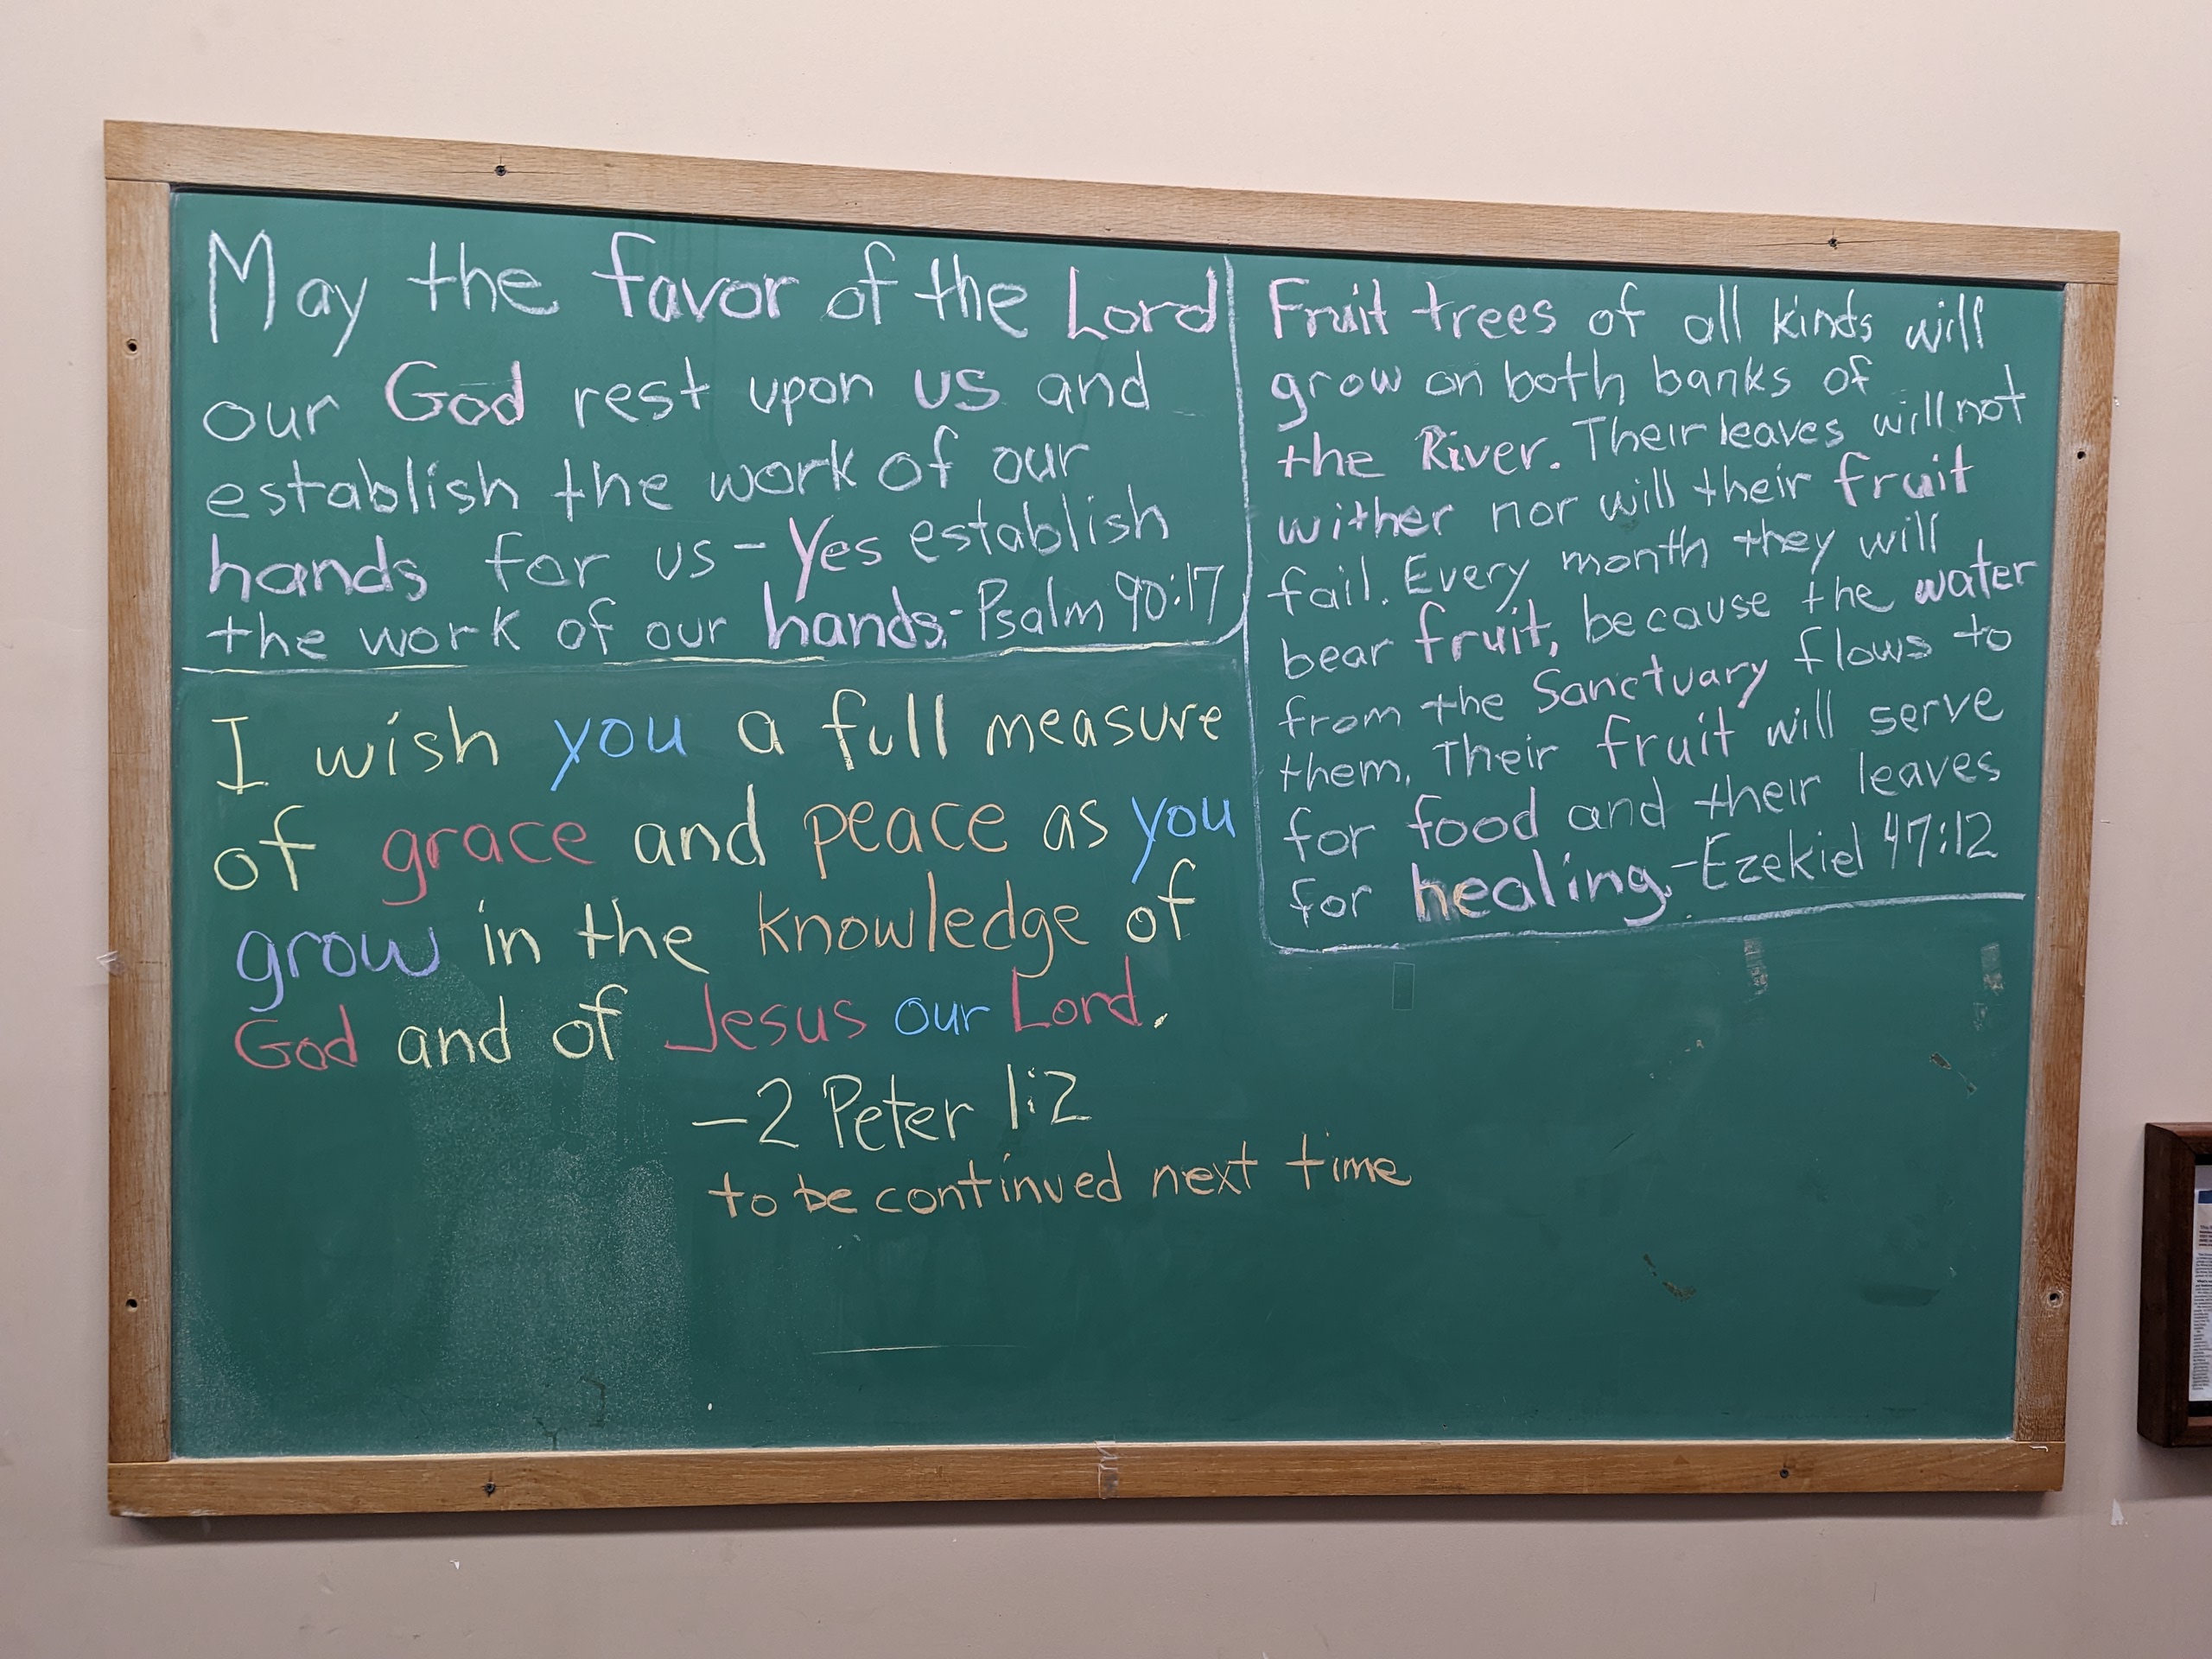 May the favor of the Lord
our God rest upon us and
establish the work of our
hands for us - Yes establish
the work of our hands. - Psalm 90:17
Fruit trees of all kinds will
grow on both banks of
the River. Their leaves will not
wither nor will their fruit
fail. Every month they will
bear fruit, because the water
from the Sanctuary flows to
them. Their fruit will serve
for food and their leaves
for healing. - Ezekiel 47:12
I wish you a full measure
of grace and peace as you
grow in the knowledge of
God and of Jesus our Lord.
- 2 Peter 1:2
to be continued next time